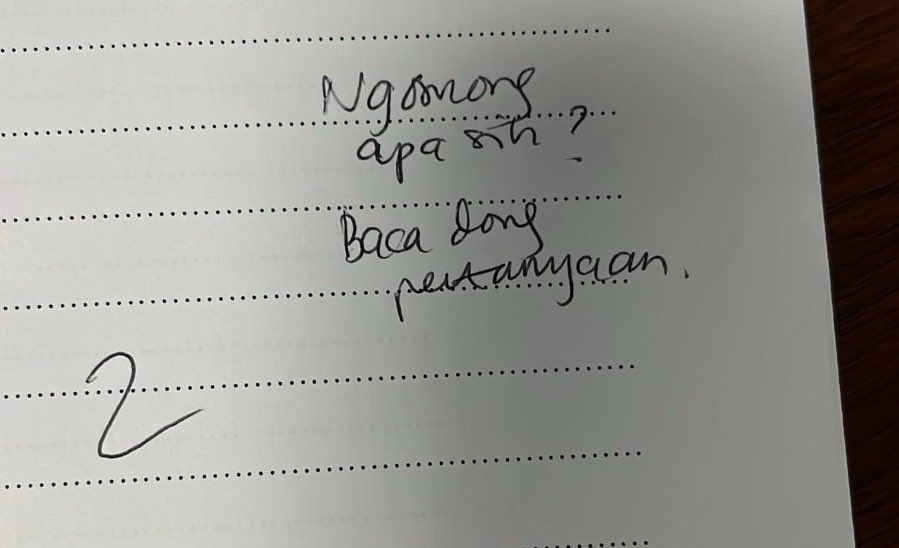 Ngomong
apa sih?
Baca dong
pertanyaan.
2